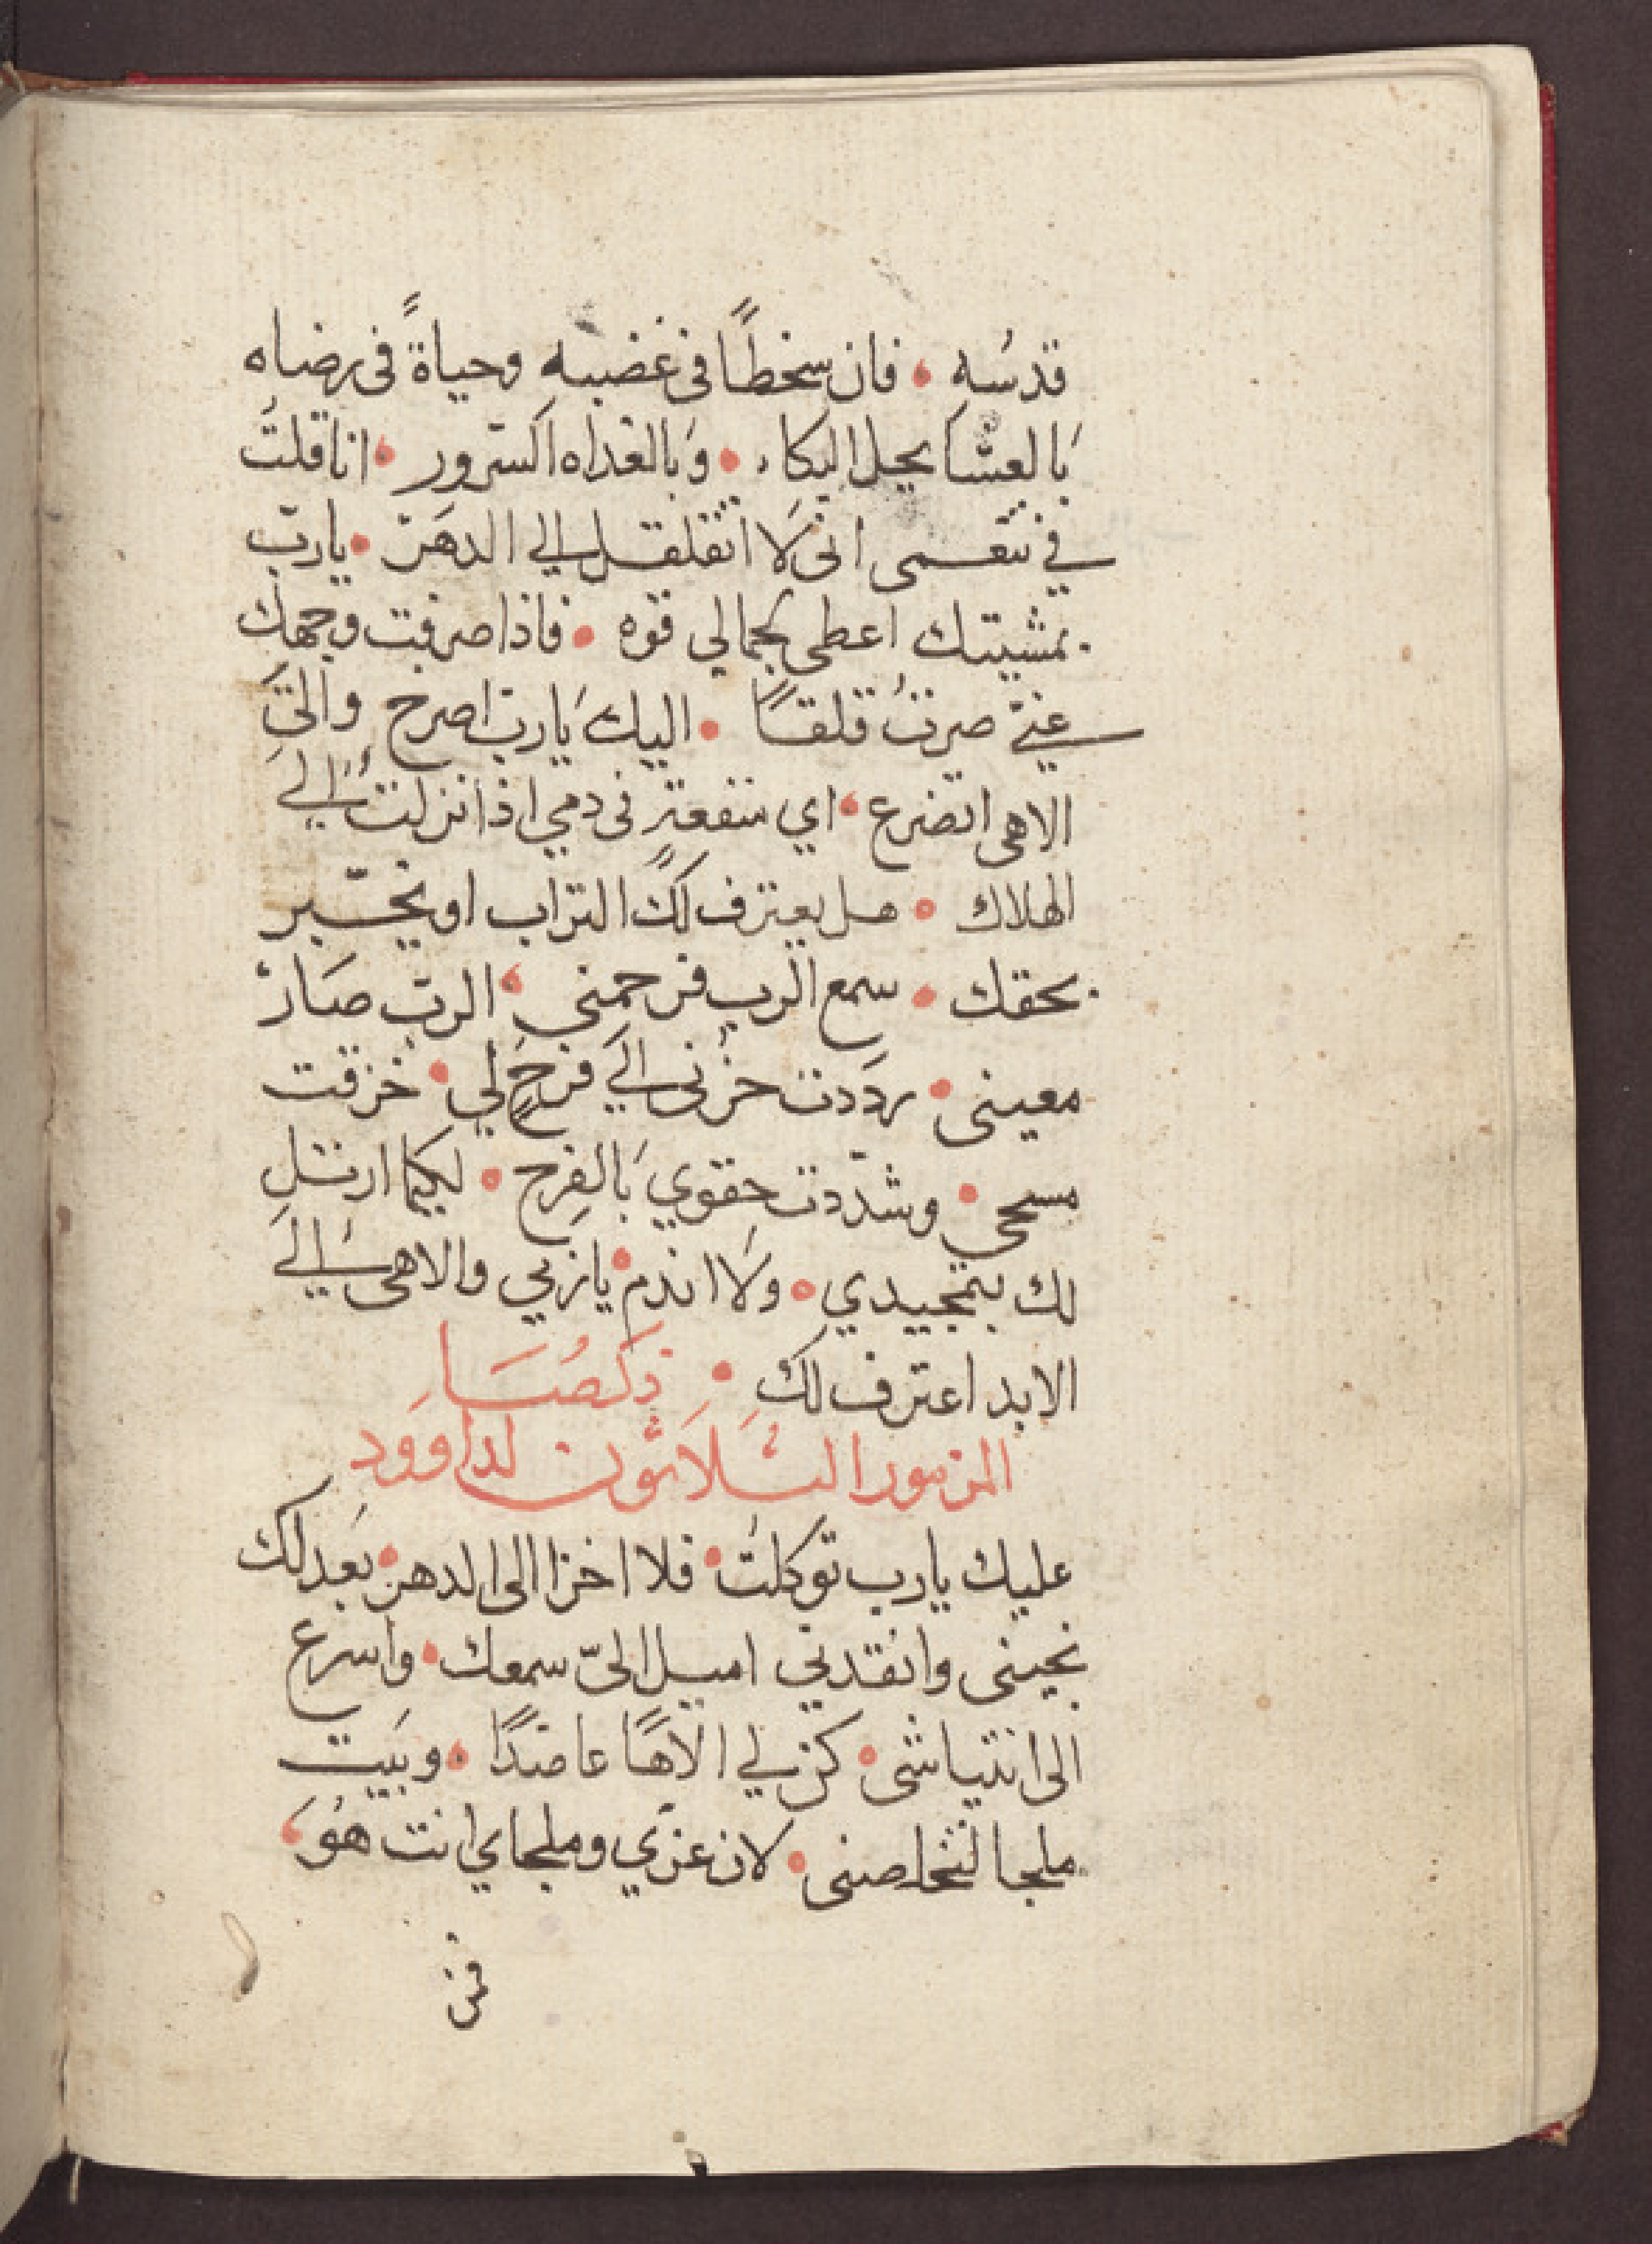 قدسُهِ ، فان سخطًا فى غضبهِ وحياةً فى رضاه
بَالعشا يحل البكاء • وَبالغداه السرور • انا قلتُ
في تنعمى انى لَا اتقلقل الي الدهَر • يا ربّ
بمشيتك اعطى لجمالي قوه • فاذا صرفت وجهكَ
عنيّ صرتُ قلقًا • اليكَ يَا ربّ اصرخ والىَ
الاهى اتضرع ، اي منفعةٍ فى دمي اذا نزلتُ الي
الهلاك • هل يعترف لكَ التراب او يخبّر
بحقك • سمع الرب فرحمني ، الربّ صَارَ
معينى • ردَدت حزنى اليَ فرحٍ لي • خزقت
مسحي • وشدّدت حقوي بَالفرح • لكيما ارتل
لك بتمجيدي • ولَا اندم • يا ربي والاهى اليَ
الابد اعترف لكَ • ذكصَا
المزمور الثَلَاثون لداوود
عليك يا رب توكلتُ • فلا اخزا الى الدهر • بعَدلكَ
نجينى وانقدني اميل الىّ سمعك • واسرع
الى انتياشى • كن لي الاهًا عاضدًا • وبيَت
ملجا لتخلصنى • لان عزّي وملجاي انت هُوَ ،
فمن